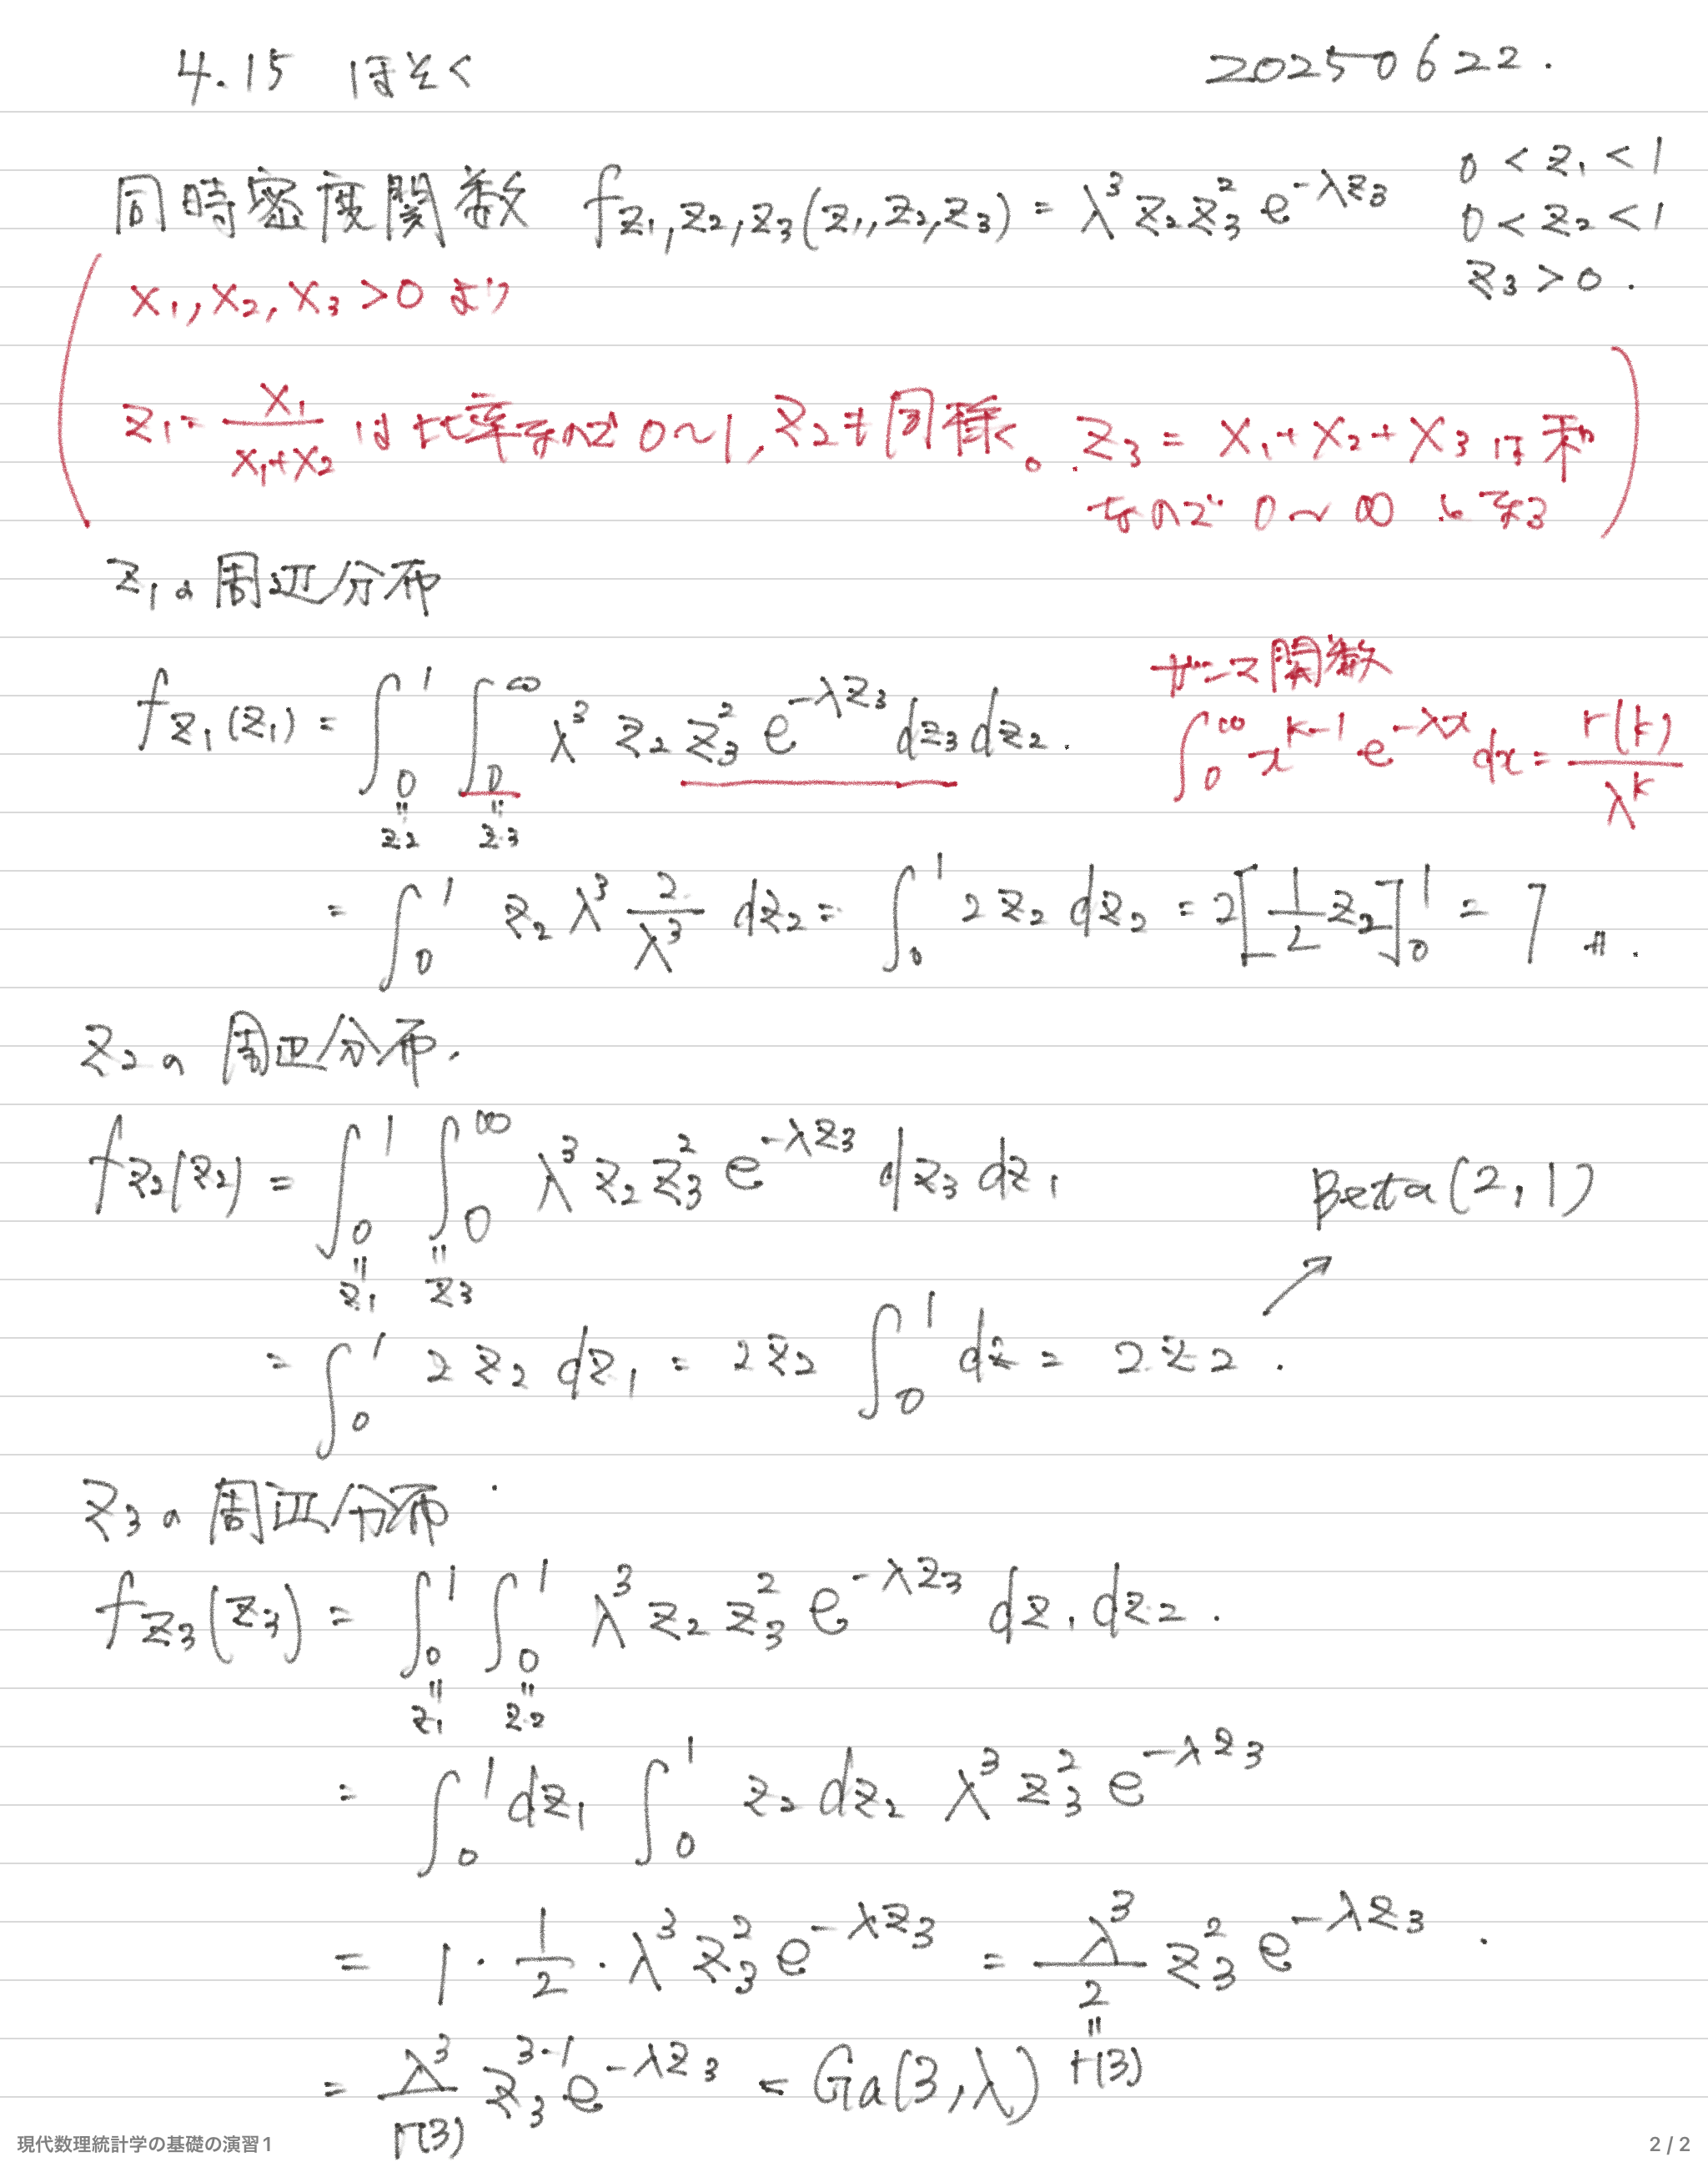 4.15 ほそく 20250622.
同時密度関数 f_{Z1,Z2,Z3}(z1,z2,z3) = λ^3 z2 z3^2 e^{-λz3} 0 < z1 < 1
0 < z2 < 1
z3 > 0.
X1, X2, X3 > 0 より
Z1 = X1/(X1+X2) は比率なので 0~1, Z2も同様。Z3 = X1+X2+X3 は和
なので 0~∞ になる
Z1の周辺分布
ガンマ関数
f_{Z1}(z1) = ∫_0^1 ∫_0^∞ λ^3 z2 z3^2 e^{-λz3} dz3 dz2. ∫_0^∞ x^{k-1} e^{-λx} dx = Γ(k)/λ^k
z2 z3
= ∫_0^1 z2 λ^3 2/λ^3 dz2 = ∫_0^1 2 z2 dz2 = 2[1/2 z2]_0^1 = 1 〃.
Z2の周辺分布.
f_{Z2}(z2) = ∫_0^1 ∫_0^∞ λ^3 z2 z3^2 e^{-λz3} dz3 dz1
z1 z3
Beta(2,1)
= ∫_0^1 2 z2 dz1 = 2z2 ∫_0^1 dz = 2z2.
Z3の周辺分布
f_{Z3}(z3) = ∫_0^1 ∫_0^1 λ^3 z2 z3^2 e^{-λz3} dz1 dz2.
z1 z2
= ∫_0^1 dz1 ∫_0^1 z2 dz2 λ^3 z3^2 e^{-λz3}
= 1・1/2・λ^3 z3^2 e^{-λz3} = λ^3/2 z3^2 e^{-λz3}.
= λ^3/Γ(3) z3^{3-1} e^{-λz3} = Ga(3,λ) Γ(3)
現代数理統計学の基礎の演習1 2 / 2